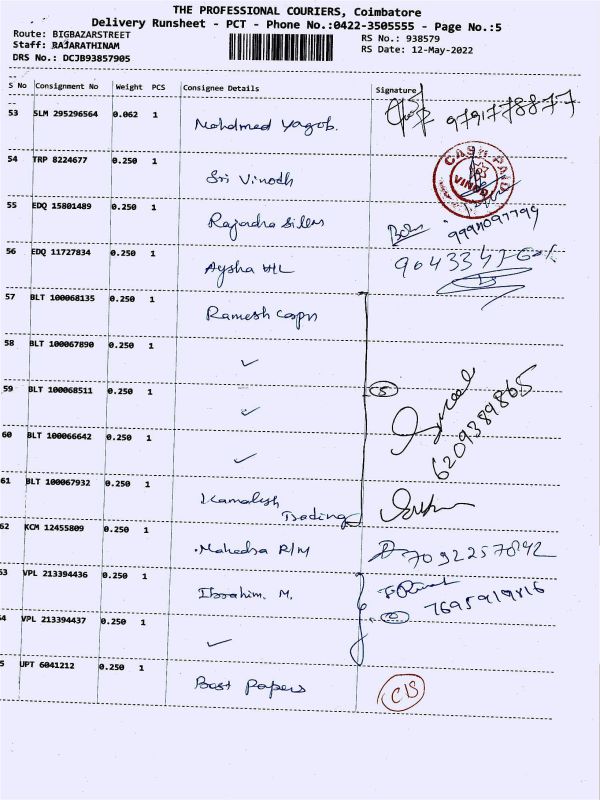 THE PROFESSIONAL COURIERS, Coimbatore
Delivery Runsheet - PCT - Phone No.:0422-3505555 - Page No.:5
Route: BIGBAZARSTREET RS No.: 938579
Staff: RAJARATHINAM RS Date: 12-May-2022
DRS No.: DCJB93857905
S No Consignment No Weight PCS Consignee Details Signature
53 SLM 295296564 0.062 1 Mohdmed Yagob. 9791778877
54 TRP 8224677 0.250 1 Sri Vinodh CASH PAID VINODH
55 EDQ 15801489 0.250 1 Rajendra Silks
56 EDQ 11727834 0.250 1 Aysha HL
57 BLT 100068135 0.250 1 Ramesh Corpn
58 BLT 100067890 0.250 1 ✓
59 BLT 100068511 0.250 1 ✓ 5
60 BLT 100066642 0.250 1 ✓ 6209389865
61 BLT 100067932 0.250 1 Kamalesh Trading
62 KCM 12455809 0.250 1 Mahedra R/M 7092257842
53 VPL 213394436 0.250 1 Ibrahim. M. 7695919816
4 VPL 213394437 0.250 1 ✓
5 UPT 6041212 0.250 1 Bast Papers C/S